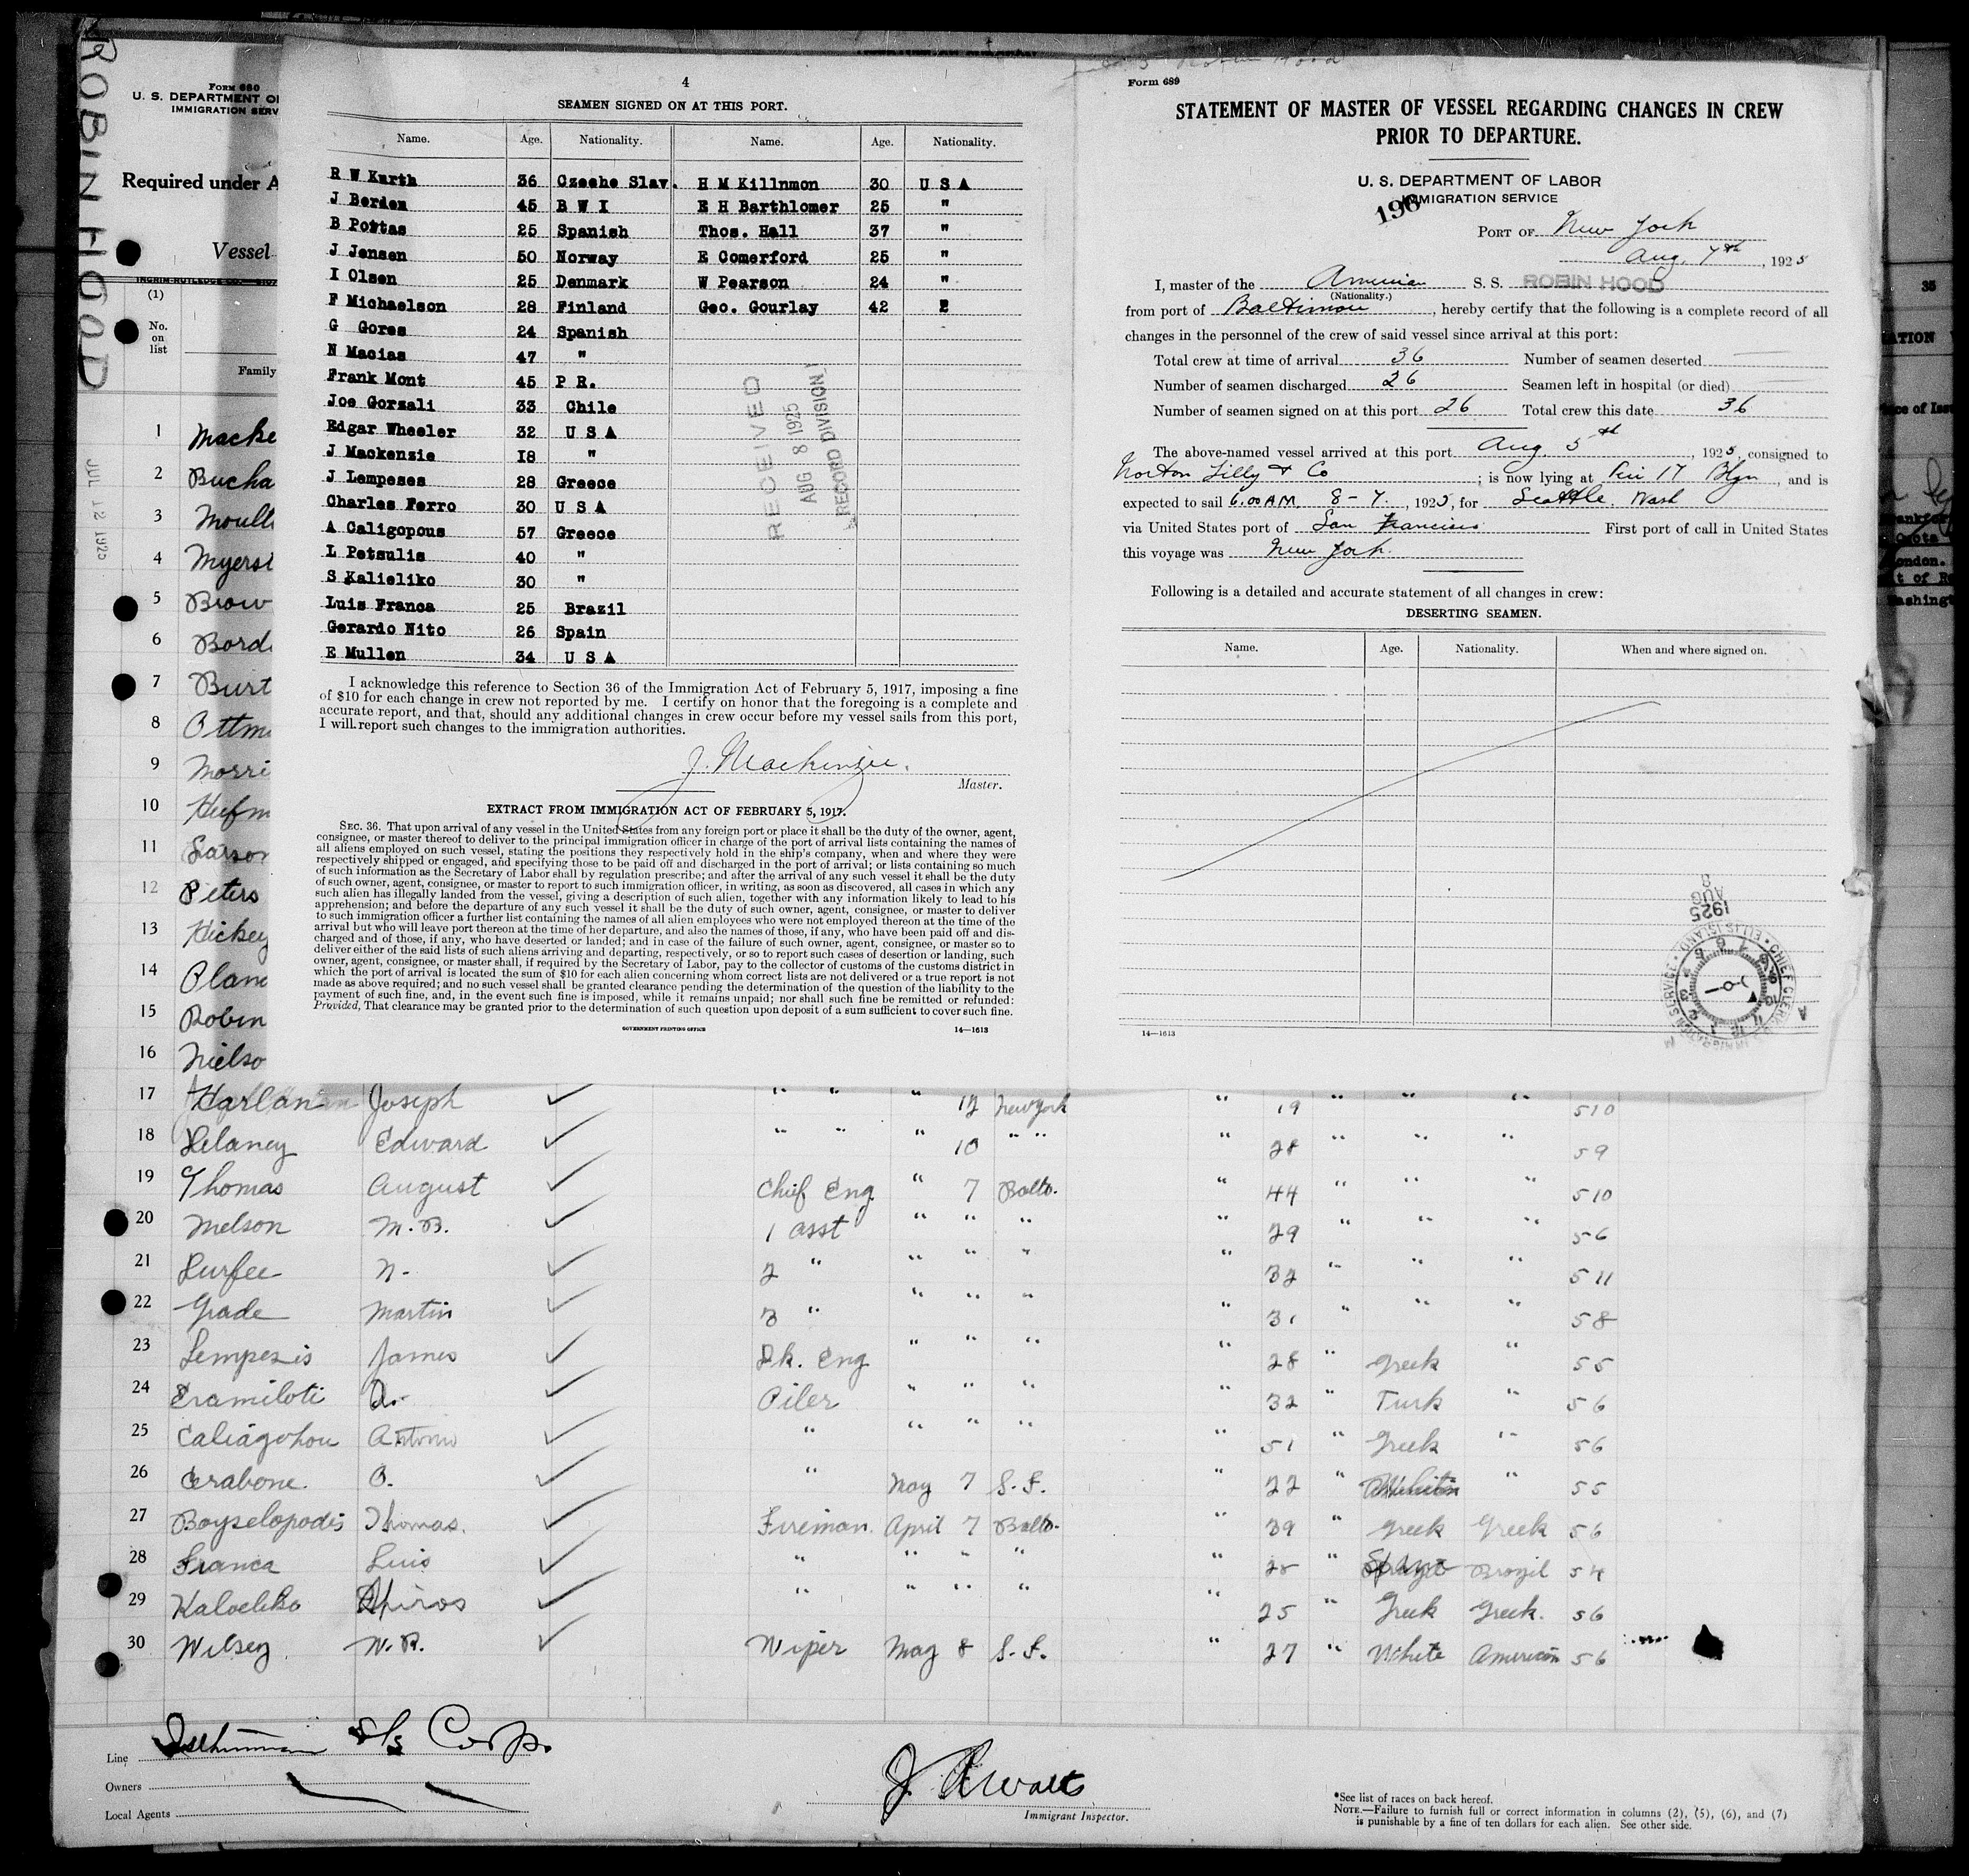 ROBIN HOOD
FORM 680
U. S. DEPARTMENT OF
IMMIGRATION SERV
Required under A
Vessel
(1)
No.
on
list
Family
JUL 12 1925
1 Macke
2 Bucha
3 Moult
4 Myers
5 Brow
6 Bord
7 Burt
8 Ottm
9 Morri
10 Hufm
11 Larson
12 Peters
13 Hickey
14 Olane
15 Robin
16 Nielso
4
SEAMEN SIGNED ON AT THIS PORT.
Name. Age. Nationality. Name. Age. Nationality.
R W Karth 36 Czeche Slav. H M Killnmon 30 U S A
J Berden 45 B W I E H Barthlomer 25 "
B Pottas 25 Spanish Thos. Hall 37 "
J Jensen 50 Norway E Comerford 25 "
I Olsen 25 Denmark W Pearson 24 "
F Michaelson 28 Finland Geo. Gourlay 42
G Gores 24 Spanish
N Macias 47 "
Frank Mont 45 P R.
Joe Gorzali 33 Chile
Edgar Wheeler 32 U S A
J Mackenzie 18 "
J Lempeses 28 Greece
Charles Ferro 30 U S A
A Caligopous 57 Greece
L Petsulis 40 "
S Kalieliko 30 "
Luis Franca 25 Brazil
Gerardo Nito 26 Spain
E Mullen 34 U S A
RECEIVED
AUG 8 1925
RECORD DIVISION
I acknowledge this reference to Section 36 of the Immigration Act of February 5, 1917, imposing a fine
of $10 for each change in crew not reported by me. I certify on honor that the foregoing is a complete and
accurate report, and that, should any additional changes in crew occur before my vessel sails from this port,
I will report such changes to the immigration authorities.
J. Mackenzie.
Master.
EXTRACT FROM IMMIGRATION ACT OF FEBRUARY 5, 1917.
SEC. 36. That upon arrival of any vessel in the United States from any foreign port or place it shall be the duty of the owner, agent,
consignee, or master thereof to deliver to the principal immigration officer in charge of the port of arrival lists containing the names of
all aliens employed on such vessel, stating the positions they respectively hold in the ship's company, when and where they were
respectively shipped or engaged, and specifying those to be paid off and discharged in the port of arrival; or lists containing so much
of such information as the Secretary of Labor shall by regulation prescribe; and after the arrival of any such vessel it shall be the duty
of such owner, agent, consignee, or master to report to such immigration officer, in writing, as soon as discovered, all cases in which any
such alien has illegally landed from the vessel, giving a description of such alien, together with any information likely to lead to his
apprehension; and before the departure of any such vessel it shall be the duty of such owner, agent, consignee, or master to deliver
to such immigration officer a further list containing the names of all alien employees who were not employed thereon at the time of the
arrival but who will leave port thereon at the time of her departure, and also the names of those, if any, who have been paid off and dis-
charged and of those, if any, who have deserted or landed; and in case of the failure of such owner, agent, consignee, or master so to
deliver either of the said lists of such aliens arriving and departing, respectively, or so to report such cases of desertion or landing, such
owner, agent, consignee, or master shall, if required by the Secretary of Labor, pay to the collector of customs of the customs district in
which the port of arrival is located the sum of $10 for each alien concerning whom correct lists are not delivered or a true report is not
made as above required; and no such vessel shall be granted clearance pending the determination of the question of the liability to the
payment of such fine, and, in the event such fine is imposed, while it remains unpaid; nor shall such fine be remitted or refunded:
Provided, That clearance may be granted prior to the determination of such question upon deposit of a sum sufficient to cover such fine.
GOVERNMENT PRINTING OFFICE 14—1613
Form 689
STATEMENT OF MASTER OF VESSEL REGARDING CHANGES IN CREW
PRIOR TO DEPARTURE.
U. S. DEPARTMENT OF LABOR
IMMIGRATION SERVICE
196
PORT OF New York
Aug. 7th, 1925
I, master of the American S. S. ROBIN HOOD
(Nationality.)
from port of Baltimore, hereby certify that the following is a complete record of all
changes in the personnel of the crew of said vessel since arrival at this port:
Total crew at time of arrival 36 Number of seamen deserted
Number of seamen discharged 26 Seamen left in hospital (or died)
Number of seamen signed on at this port 26 Total crew this date 36
The above-named vessel arrived at this port Aug 5th, 1925, consigned to
Norton Lilly & Co; is now lying at Pier 17 Bklyn, and is
expected to sail 6.00 AM 8-7, 1925, for Seattle. Wash
via United States port of San Francisco First port of call in United States
this voyage was New York.
Following is a detailed and accurate statement of all changes in crew:
DESERTING SEAMEN.
Name. Age. Nationality. When and where signed on.
1925
AUG
CHIEF CLERK • IMMIGRATION SERVICE • ELLIS ISLAND
14—1613
35
17 Harlan Joseph " " " 12 New York " 19 " " " 510
18 Delaney Edward " " " 10 " " " 28 " " " 59
19 Thomas August Chief Eng " 7 Balto. " 44 " " " 510
20 Melson M. B. 1 asst " " " " 29 " " " 56
21 Durfee N- 2 " " " " " 32 " " " 511
22 Grade Martin 3 " " " " " 31 " " " 58
23 Lempesis James Dk. Eng " " " " 28 " Greek " 55
24 Eramiloti A. Oiler " " " " 32 " Turk " 56
25 Caliagohou Antonio " " " " " 51 " Greek " 56
26 Crabone O. " May 7 S.F. " 22 " " 55
27 Boyselopodis Thomas. Fireman. April 7 Balto. " 39 " Greek Greek 56
28 Franca Luis " " " " " 25 " Brazil 54
29 Kaloeliko Spiros " " " " " 25 " Greek Greek. 56
30 Wilsey W. R. Wiper May 8 S.F. " 27 " White American 56
Line Isthmian S/S Corp.
Owners
Local Agents
Immigrant Inspector.
*See list of races on back hereof.
NOTE.—Failure to furnish full or correct information in columns (2), (5), (6), and (7)
is punishable by a fine of ten dollars for each alien. See other side.